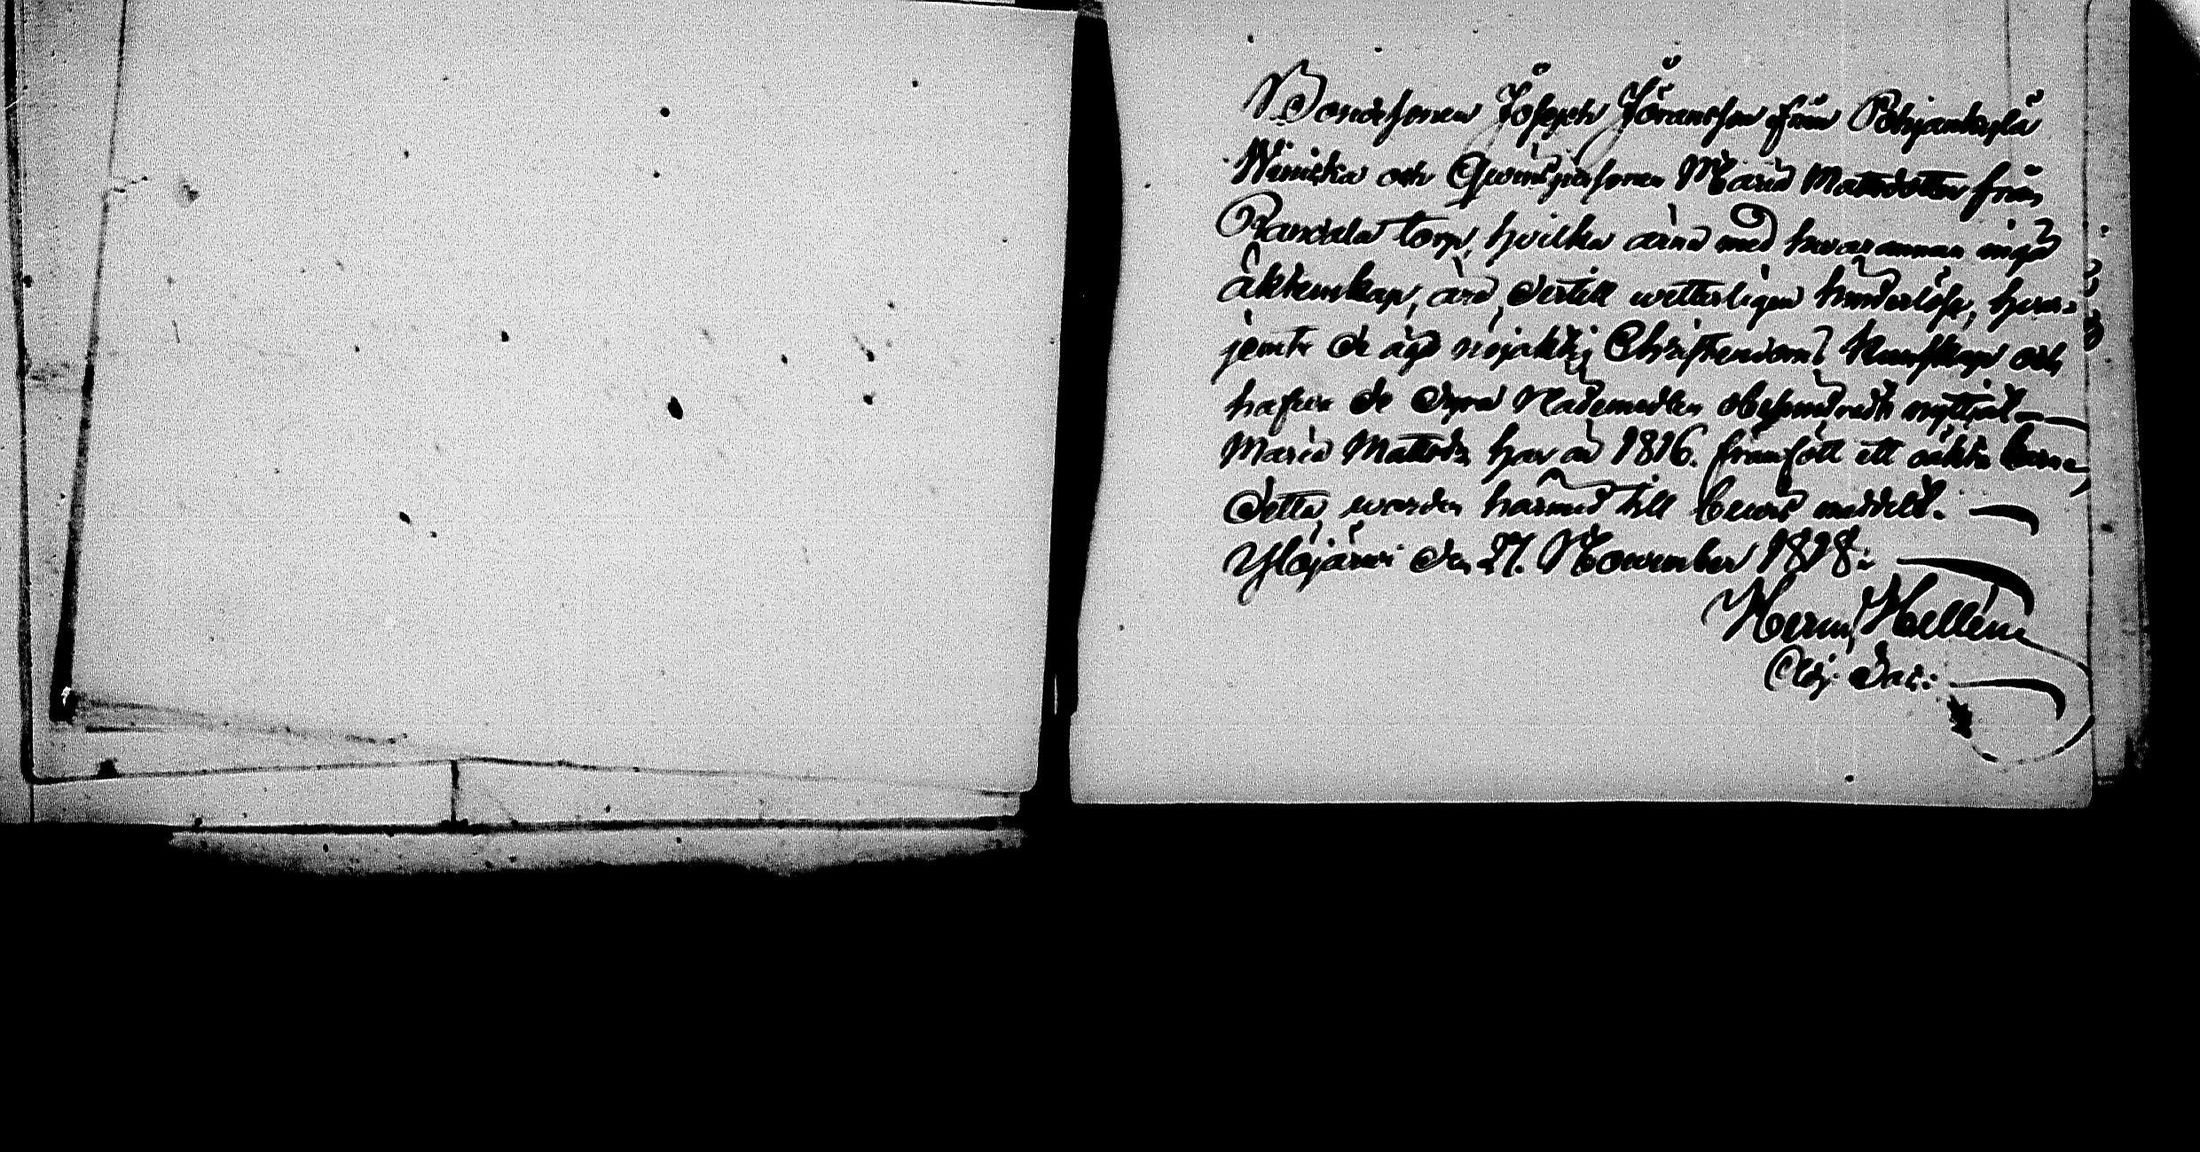 Bondesonen Joseph Jöransson från Pohjankylä
Winiska och Qwinspersonen Maria Mattsdotter från
Randala torp, hvilka ärna med hvarannan ingå
äktenskap, äro dertill wetterligen hinderlöse, hvar-
jemte de äga nöjaktig Christendoms kunskap och
hafwa de dyra Nådemedlen obehindradt nyttjat
Maria Mattsdr har år 1816. framfödt ett oäkta barn
Detta warder härmed till bewis meddelt.
Ylöjärwi den 27. November 1818.
Herm Hellén
Adj. Sac: